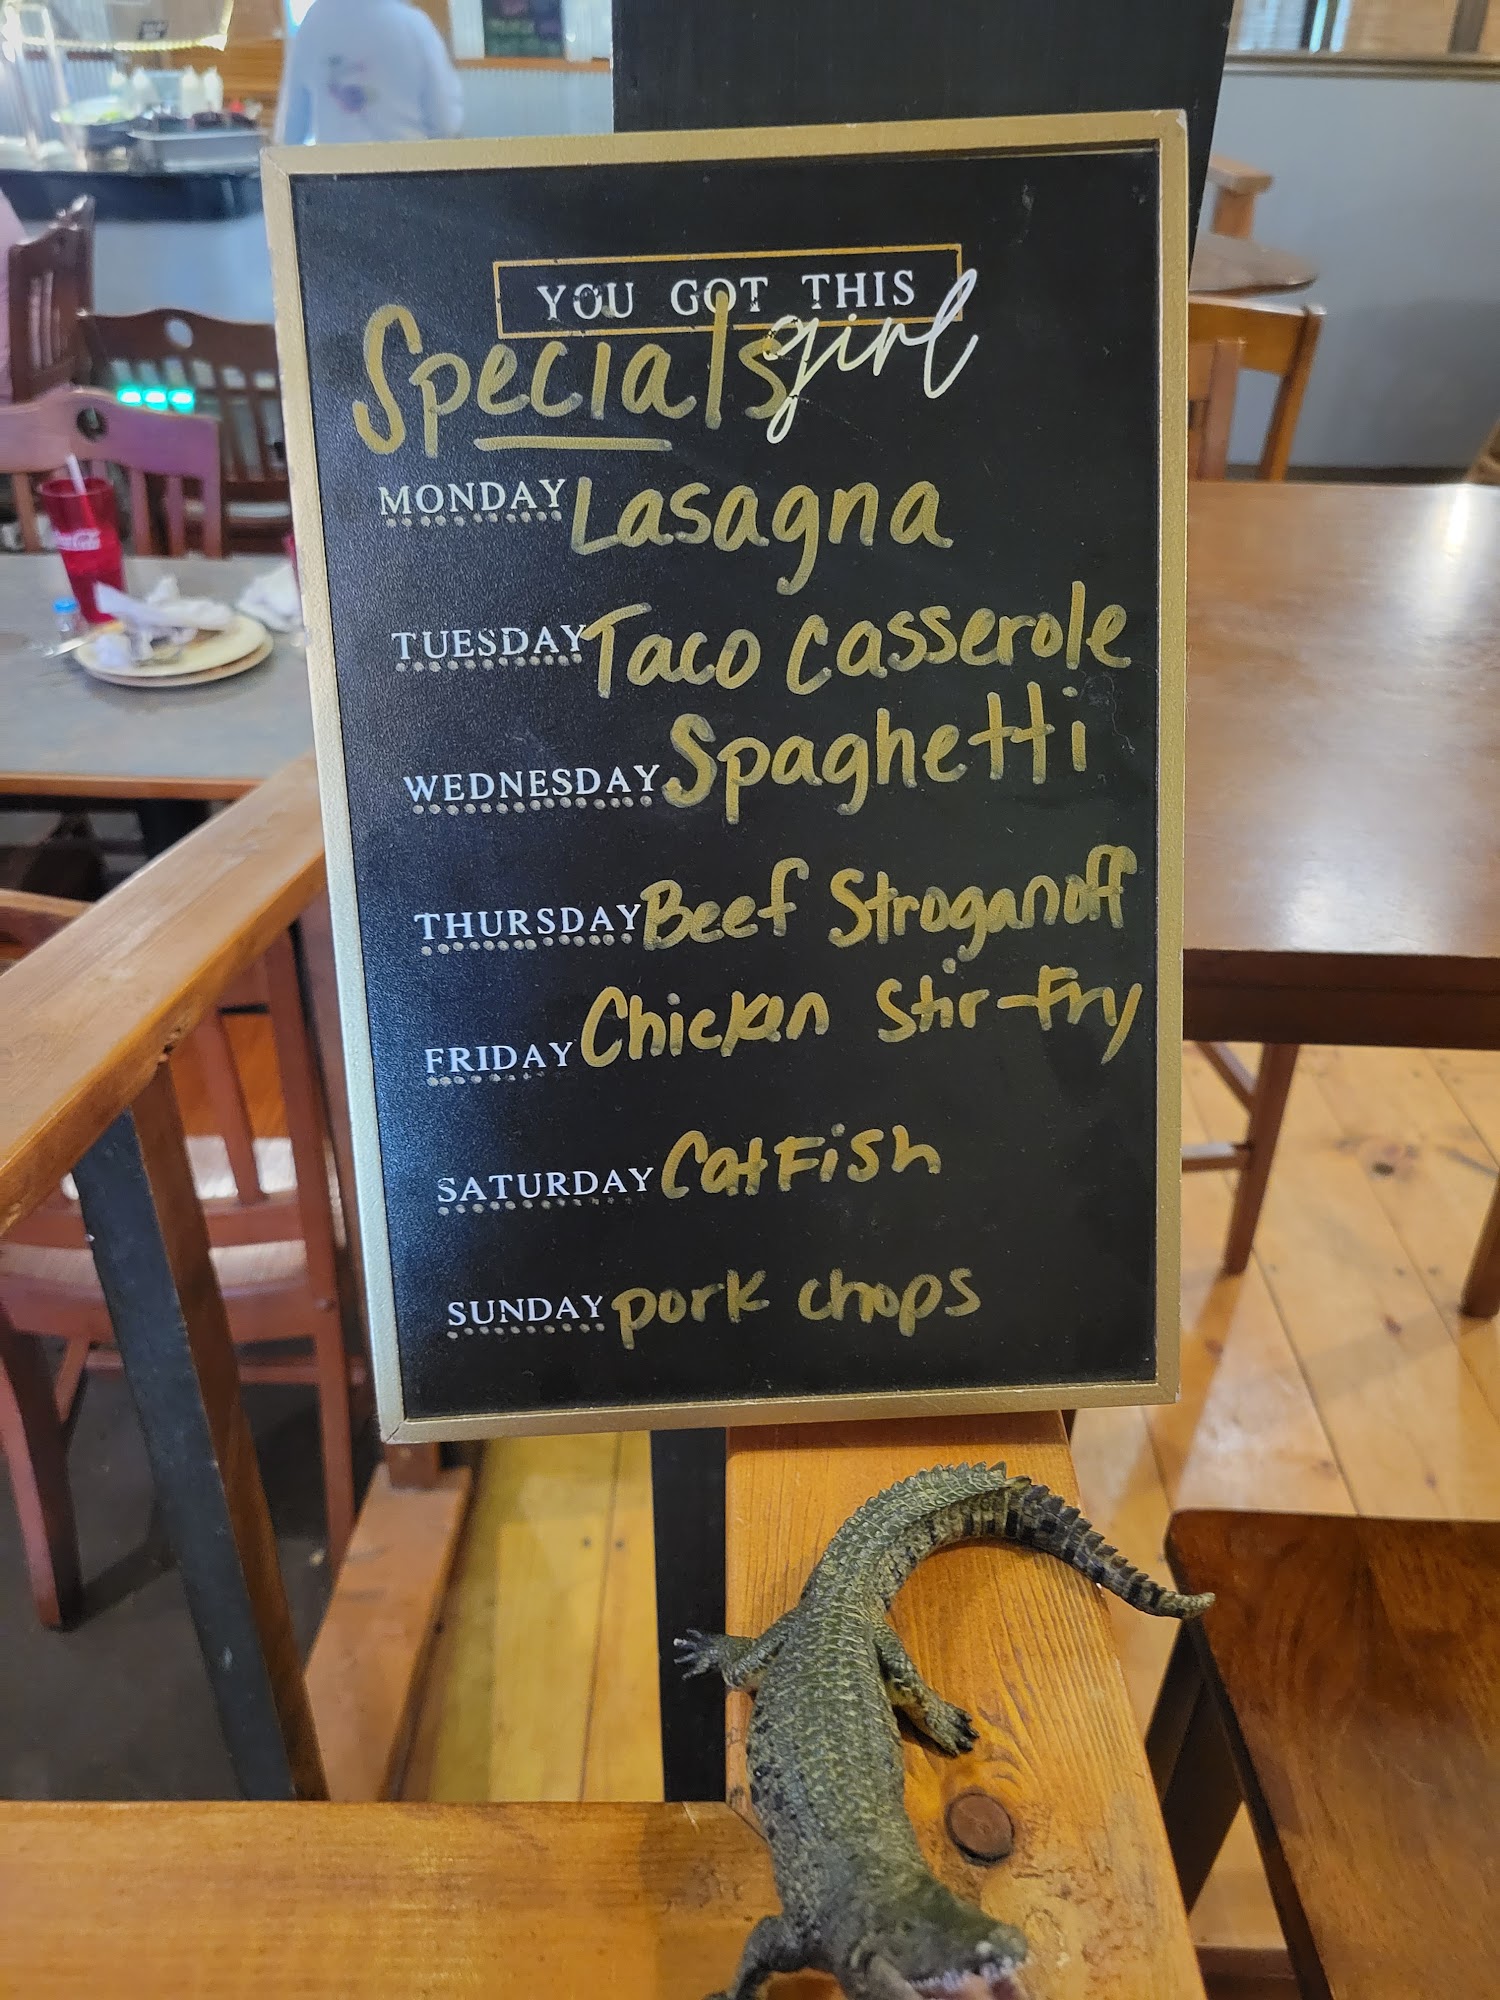 YOU GOT THIS
girl
Specials
MONDAY Lasagna
TUESDAY Taco Casserole
WEDNESDAY Spaghetti
THURSDAY Beef Stroganoff
FRIDAY Chicken Stir-Fry
SATURDAY CatFish
SUNDAY pork chops
Coca-Cola